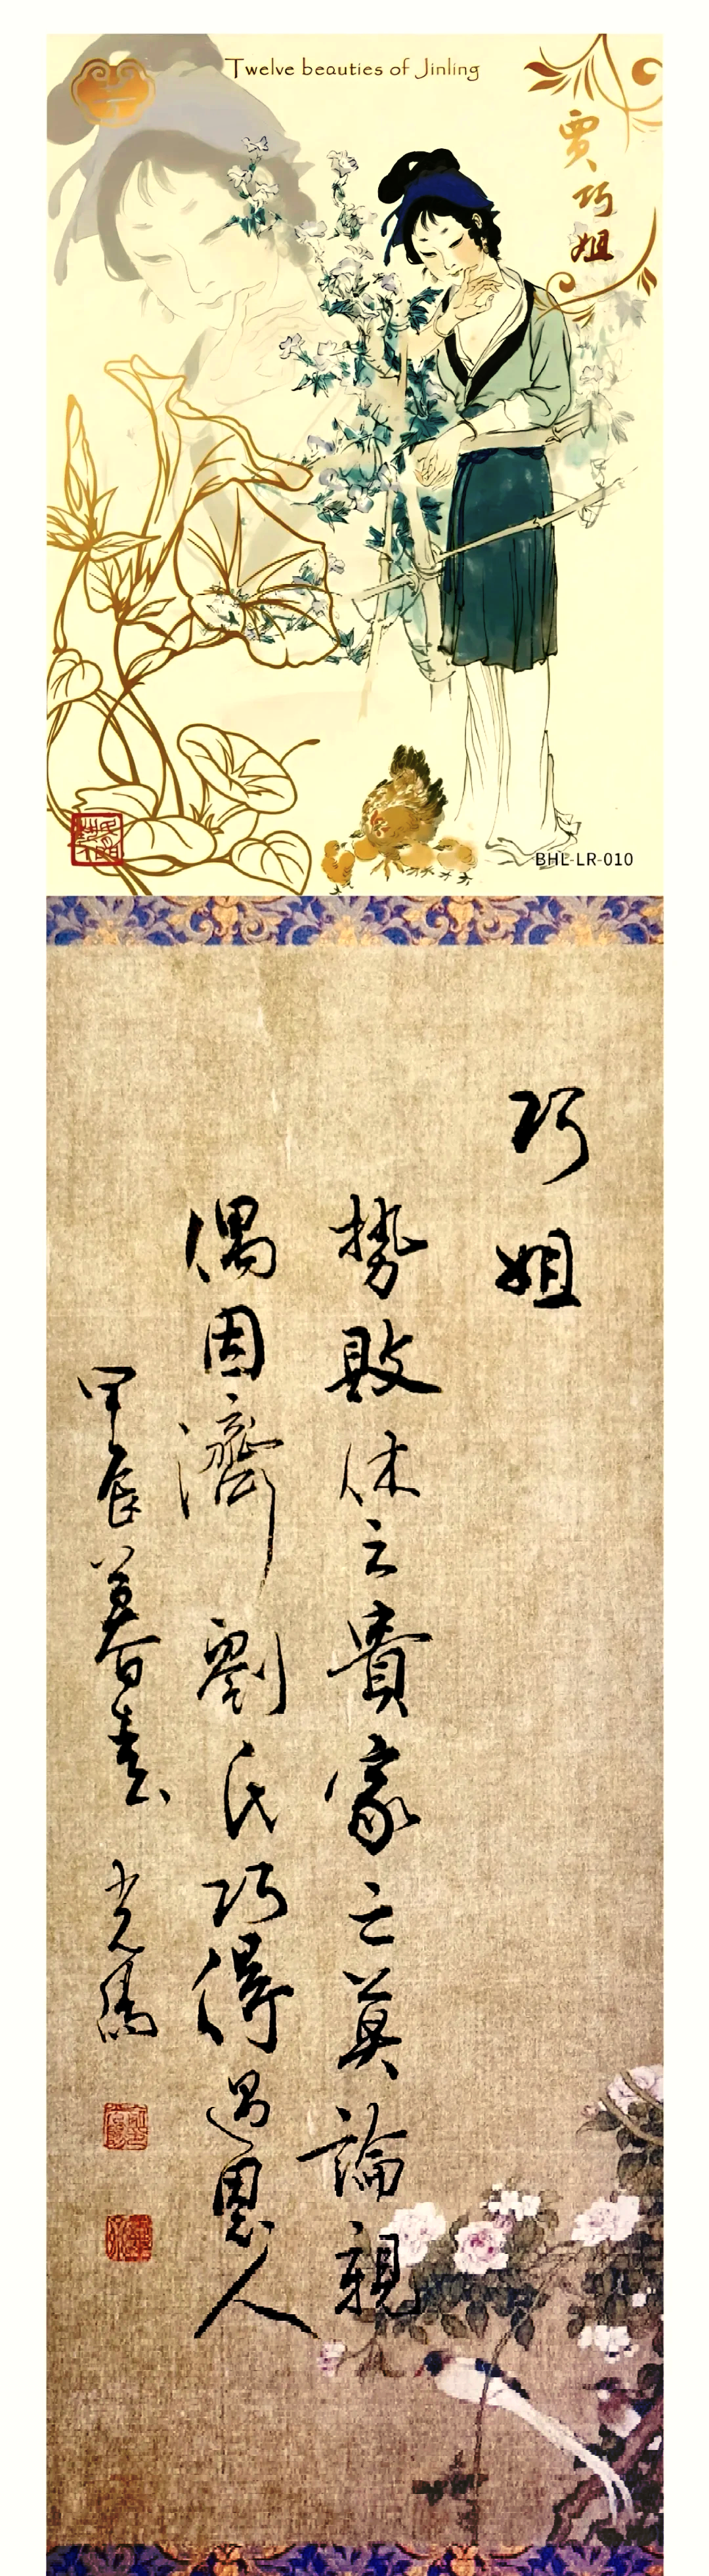 Twelve beauties of Jinling
賈巧姐
BHL-LR-010
巧姐
勢敗休云貴家亡莫論親
偶因濟劉氏巧得遇恩人
甲辰暮春書